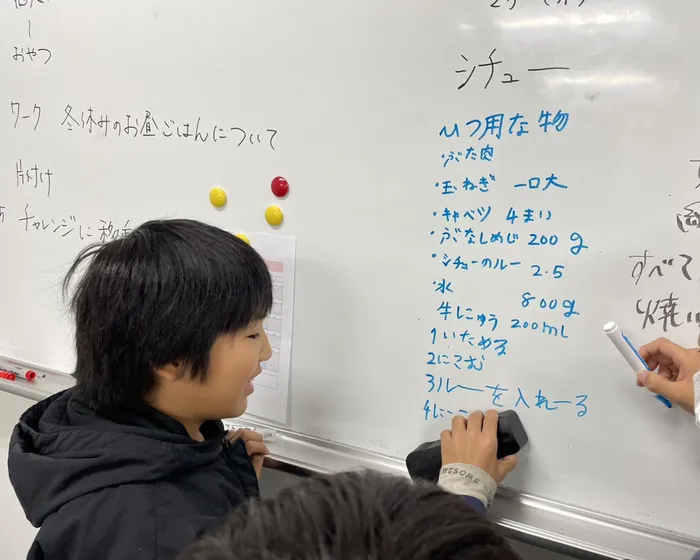 おやつ
ワーク 冬休みのお昼ごはんについて
片付け
チャレンジに
シチュー
ひつ用な物
・ぶた肉
・玉ねぎ 一口大
・キャベツ 4まい
・ぶなしめじ 200g
・シチューのルー 2.5
・水 800g
牛にゅう 200ml
1いためる
2にこむ
3ルーを入れーる
4に
すべて
焼い
AWESOME